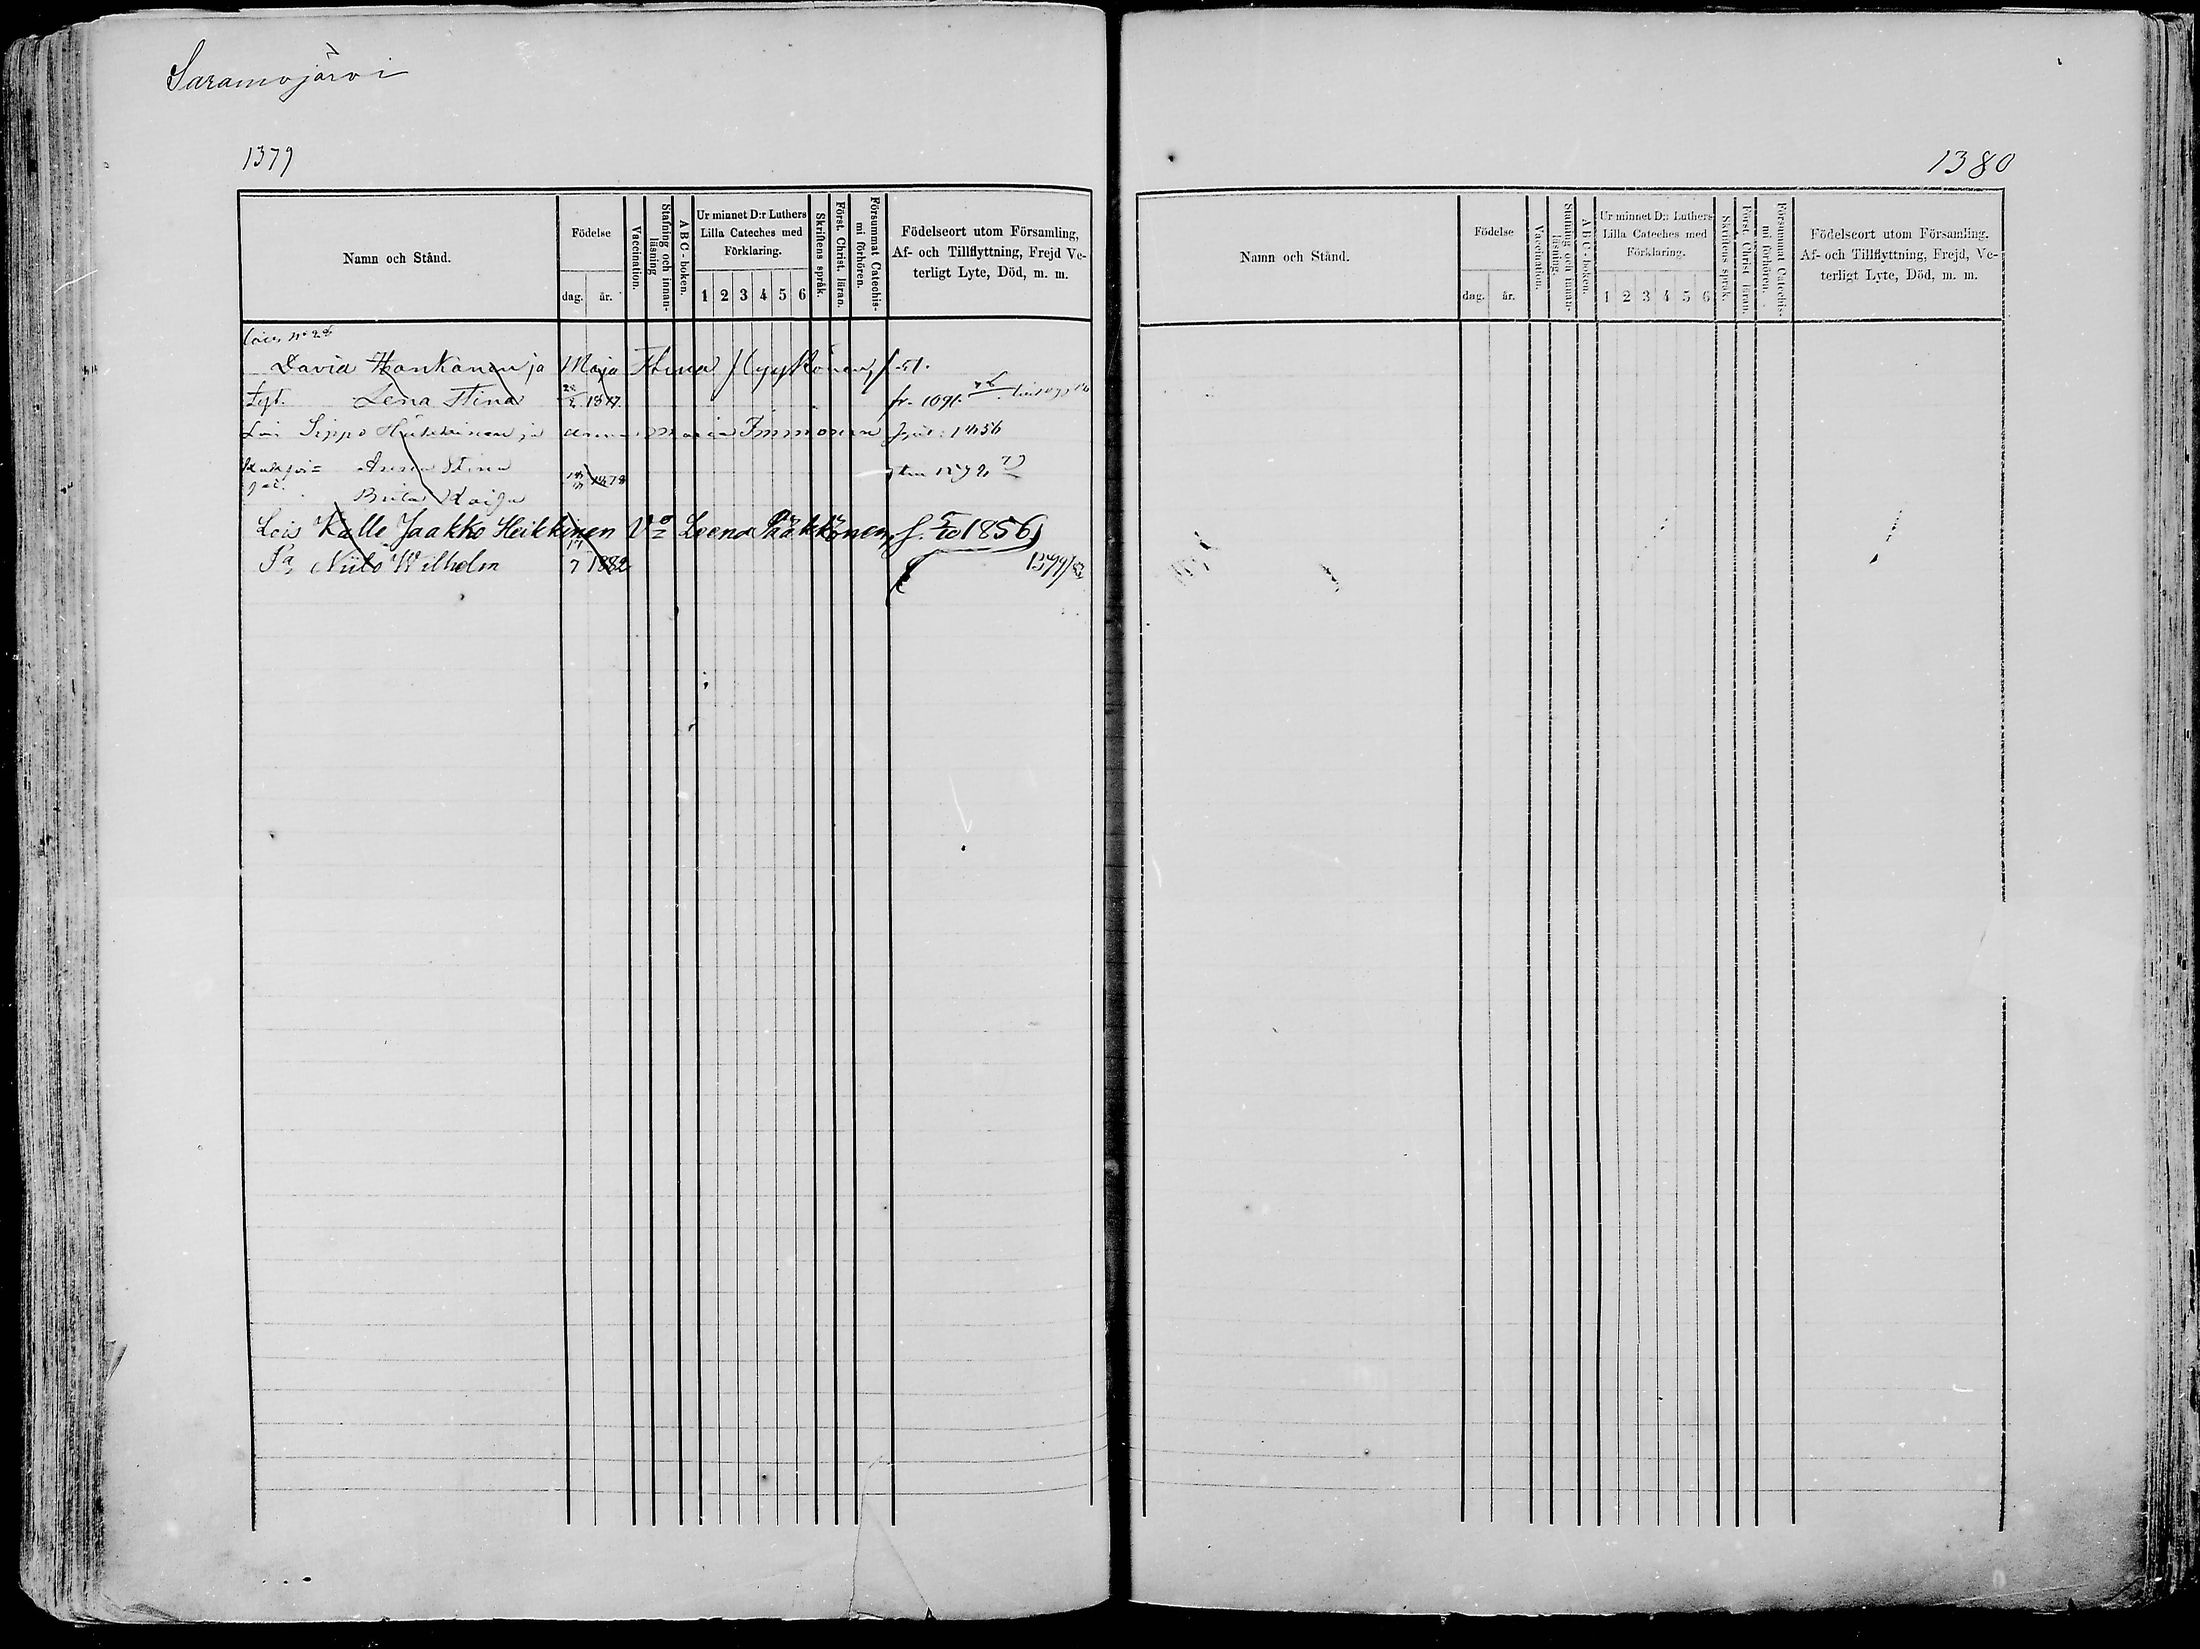 Saramojärvi
1379
Namn och Stånd.
Födelse
dag.
år.
Vaccination.
Stafning och innan-
läsning
ABC-boken.
Ur minnet D:r Luthers
Lilla Cateches med
Förklaring.
1 2 3 4 5 6
Skriftens språk.
Först. Christ. läran.
Försummat Catechis-
mi förhören.
Födelseort utom Församling,
Af- och Tillflyttning, Frejd Ve-
terligt Lyte, Död, m. m.
Lois
David Honkanen ja Maja Stina Hyykönen, f. 51.
tyt. Lena Stina fr. 1091.
Loi Sippo Heikkinen ja Anna Maria Immonen 1856
Anna Stina
Brita Kaisa 1878
Lois Kalle Jaakko Heikkinen Vo Leena Pääkkönen, f. 5/10 1856
Pa, Niilo Wilhelm 17/7 1882 1599/83
1380
Namn och Stånd.
Födelse
dag.
år.
Vaccination.
Stafning och innan-
läsning.
ABC-boken.
Ur minnet D:r Luthers
Lilla Cateches med
Förklaring.
1 2 3 4 5 6
Skriftens språk.
Först. Christ läran.
Försummat Catechis-
mi förhören.
Födelseort utom Församling.
Af- och Tillflyttning, Frejd, Ve-
terligt Lyte, Död, m. m.